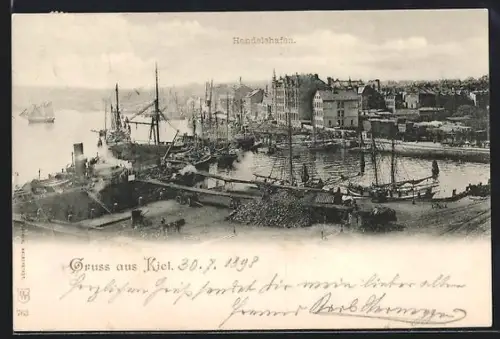 Handelshafen.
Gruss aus Kiel. 30.7.1898
Herzlichen Gruß sendet dir mein lieber alter
Carl
763